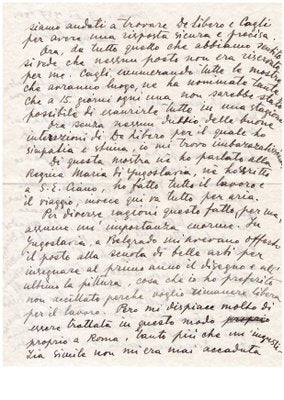 siamo andati a trovare De Libero e Cagli
per avere una risposta sicura e precisa.
Ora, da tutto quello che abbiamo sentito
si vede che nessun posto non era riservato
per me. Cagli, enumerando tutte le mostre
che avranno luogo, ne ha nominato tante
che a 15 giorni ogni una non sarebbe stato
possibile di esaurire tutto in una stagione
Sia senza nessun dubbio delle buone
intenzioni di De Libero per il quale ho
simpatia e stima, io mi trovo imbarazzatissima
Di questa mostra ne ho parlato alla
Regina Maria di Yugoslavia, ne ho scritto
a S.E. Ciano, ho fatto tutto il lavoro e
il viaggio, invece qui va tutto per aria.
Per diverse ragioni questo fatto, per me,
assume un importanza enorme. In
Yugoslavia, a Belgrado mi avevano offerto
il posto alla scuola di belle arti per
insegnare al primo anno il disegno e al
ultimo la pittura, cosa che io ho proprio
non accettato perché voglio rimanere libera
per il lavoro. Però mi dispiace molto di
essere trattata in questo modo
proprio a Roma, tanto più che un ingiusti-
zia simile non mi era mai accaduta